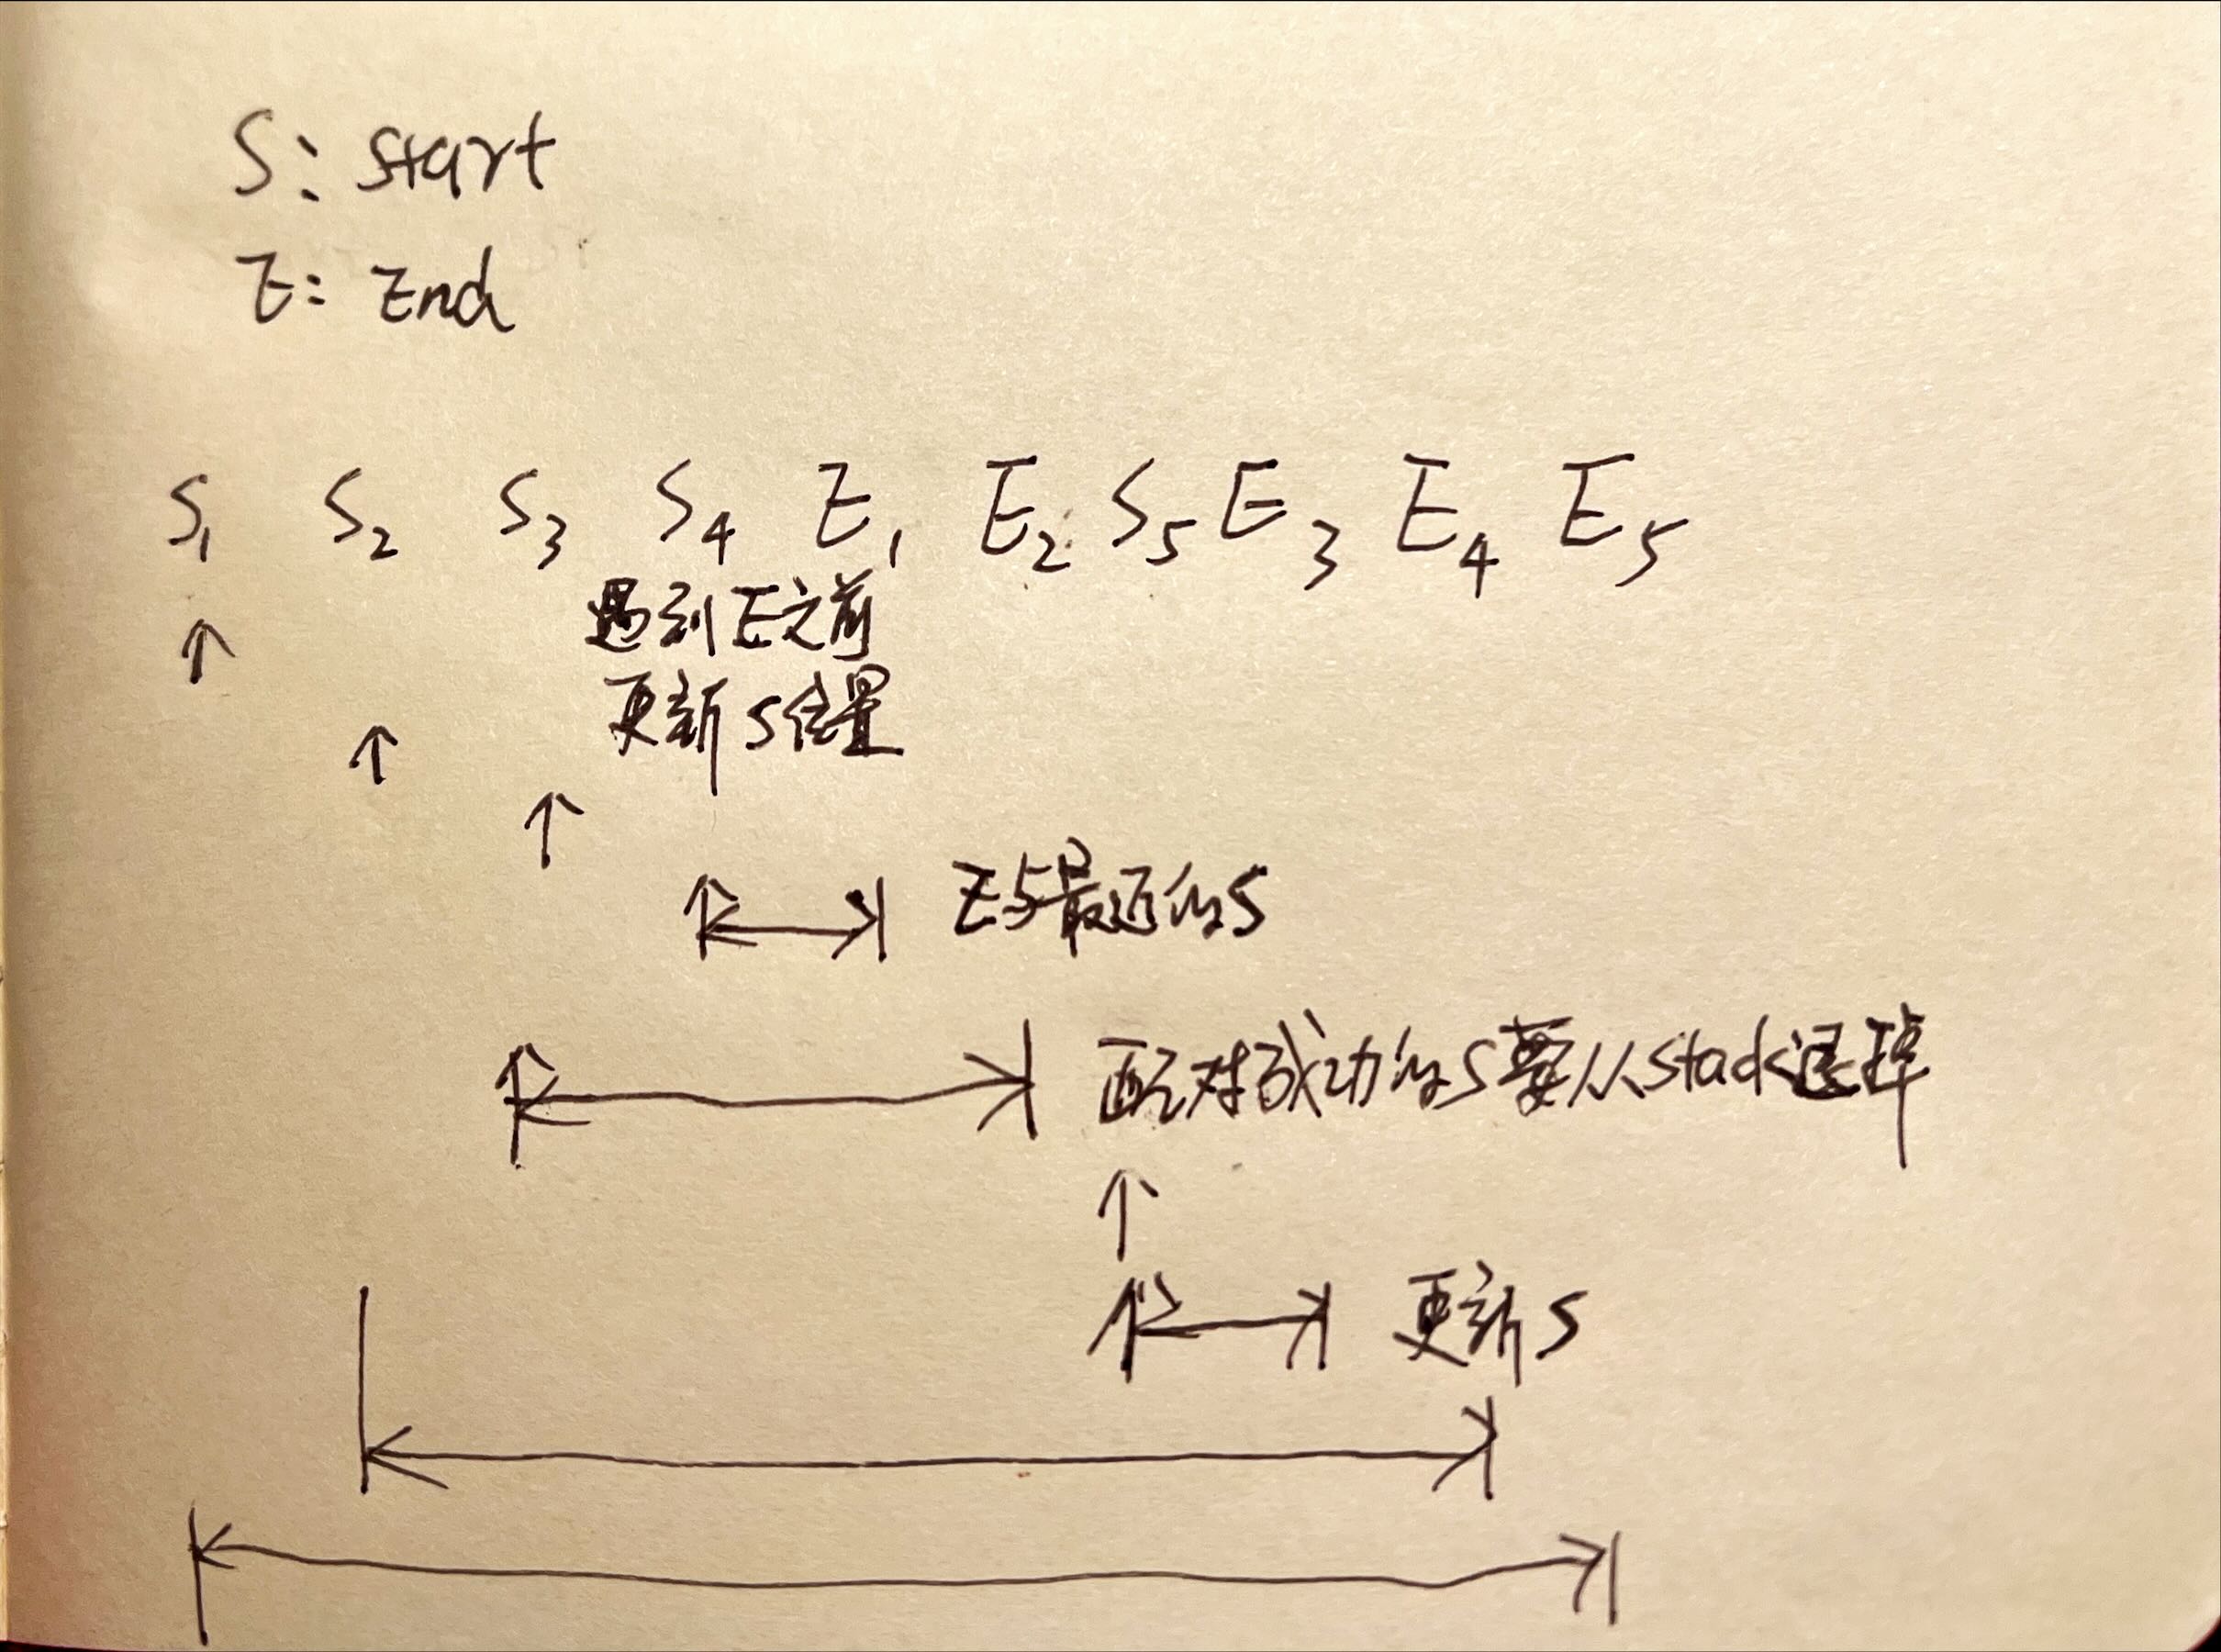 S: Start
E: End
S1 S2 S3 S4 E1 E2 S5 E3 E4 E5
遇到E之前
更新S位置
E与最近的S
配对成功的S要从stack退掉
更新S